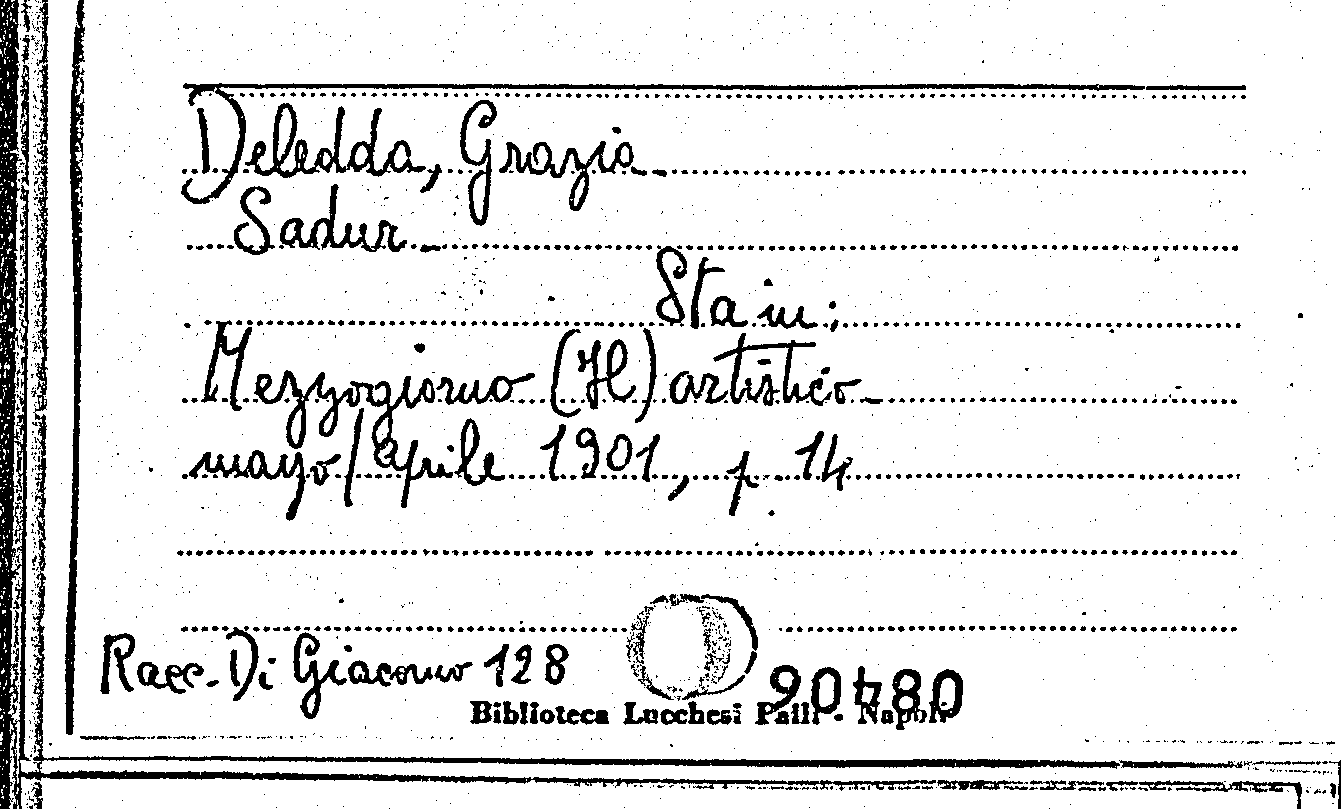 Deledda, Grazia
Sadur
Sta in:
Mezzogiorno (Il) artistico
marzo/Aprile 1901, p. 14
Racc. Di Giacomo 128
08406
Biblioteca Lucchesi Palli - Napoli